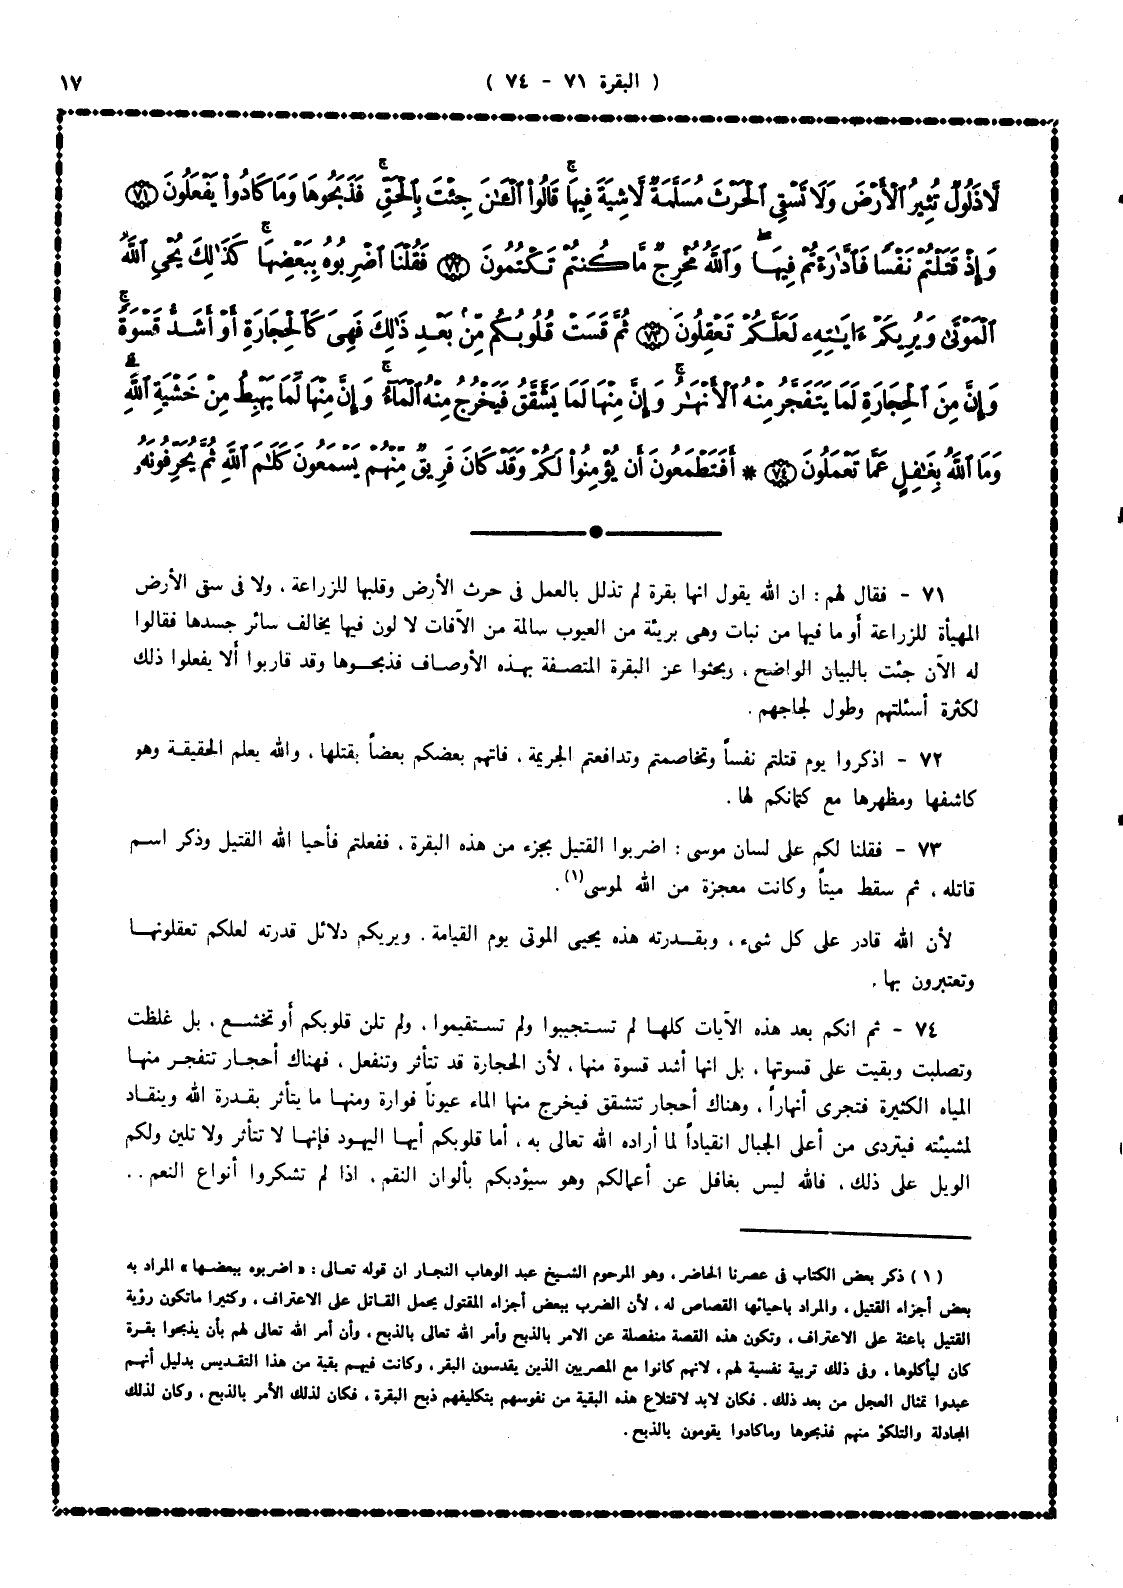 ( البقرة ٧١ - ٧٤ )
١٧
لَّا ذَلُولٌ تُثِيرُ ٱلْأَرْضَ وَلَا تَسْقِى ٱلْحَرْثَ مُسَلَّمَةٌ لَّا شِيَةَ فِيهَا ۚ قَالُوا۟ ٱلْـَٰٔنَ جِئْتَ بِٱلْحَقِّ ۚ فَذَبَحُوهَا وَمَا كَادُوا۟ يَفْعَلُونَ ٧١
وَإِذْ قَتَلْتُمْ نَفْسًا فَٱدَّٰرَْٰٔتُمْ فِيهَا ۖ وَٱللَّهُ مُخْرِجٌ مَّا كُنتُمْ تَكْتُمُونَ ٧٢ فَقُلْنَا ٱضْرِبُوهُ بِبَعْضِهَا ۚ كَذَٰلِكَ يُحْىِ ٱللَّهُ
ٱلْمَوْتَىٰ وَيُرِيكُمْ ءَايَٰتِهِۦ لَعَلَّكُمْ تَعْقِلُونَ ٧٣ ثُمَّ قَسَتْ قُلُوبُكُم مِّنۢ بَعْدِ ذَٰلِكَ فَهِىَ كَٱلْحِجَارَةِ أَوْ أَشَدُّ قَسْوَةً ۚ
وَإِنَّ مِنَ ٱلْحِجَارَةِ لَمَا يَتَفَجَّرُ مِنْهُ ٱلْأَنْهَٰرُ ۚ وَإِنَّ مِنْهَا لَمَا يَشَّقَّقُ فَيَخْرُجُ مِنْهُ ٱلْمَآءُ ۚ وَإِنَّ مِنْهَا لَمَا يَهْبِطُ مِنْ خَشْيَةِ ٱللَّهِ ۗ
وَمَا ٱللَّهُ بِغَٰفِلٍ عَمَّا تَعْمَلُونَ ٧٤ * أَفَتَطْمَعُونَ أَن يُؤْمِنُوا۟ لَكُمْ وَقَدْ كَانَ فَرِيقٌ مِّنْهُمْ يَسْمَعُونَ كَلَٰمَ ٱللَّهِ ثُمَّ يُحَرِّفُونَهُۥ
٧١ - فقال لهم : ان الله يقول انها بقرة لم تذلل بالعمل فى حرث الأرض وقلبها للزراعة ، ولا فى سقى الأرض
المهيأة للزراعة أو ما فيها من نبات وهى بريئة من العيوب سالمة من الآفات لا لون فيها يخالف سائر جسدها فقالوا
له الآن جئت بالبيان الواضح ، وبحثوا عن البقرة المتصفة بهذه الأوصاف فذبحوها وقد قاربوا ألا يفعلوا ذلك
لكثرة أسئلتهم وطول لجاجهم .
٧٢ - اذكروا يوم قتلتم نفساً وتخاصمتم وتدافعتم الجريمة ، فاتهم بعضكم بعضاً بقتلها ، والله يعلم الحقيقة وهو
كاشفها ومظهرها مع كتمانكم لها .
٧٣ - فقلنا لكم على لسان موسى : اضربوا القتيل بجزء من هذه البقرة ، ففعلتم فأحيا الله القتيل وذكر اسم
قاتله ، ثم سقط ميتاً وكانت معجزة من الله لموسى(١) .
لأن الله قادر على كل شىء ، وبقدرته هذه يحيى الموتى يوم القيامة . ويريكم دلائل قدرته لعلكم تعقلونها
وتعتبرون بها .
٧٤ - ثم انكم بعد هذه الآيات كلها لم تستجيبوا ولم تستقيموا ، ولم تلن قلوبكم أو تخشع ، بل غلظت
وتصلبت وبقيت على قسوتها ، بل انها أشد قسوة منها ، لأن الحجارة قد تتأثر وتنفعل ، فهناك أحجار تتفجر منها
المياه الكثيرة فتجرى أنهاراً ، وهناك أحجار تتشقق فيخرج منها الماء عيوناً فوارة ومنها ما يتأثر بقدرة الله وينقاد
لمشيئته فيتردى من أعلى الجبال انقياداً لما أراده الله تعالى به ، أما قلوبكم أيها اليهود فإنها لا تتأثر ولا تلين ولكم
الويل على ذلك ، فالله ليس بغافل عن أعمالكم وهو سيؤدبكم بألوان النقم ، اذا لم تشكروا أنواع النعم . .
(١) ذكر بعض الكتاب فى عصرنا الحاضر ، وهو المرحوم الشيخ عبد الوهاب النجار ان قوله تعالى : « اضربوه ببعضها » المراد به
بعض أجزاء القتيل ، والمراد باحيائها القصاص له ، لأن الضرب ببعض أجزاء المقتول يحمل القاتل على الاعتراف ، وكثيرا ماتكون رؤية
القتيل باعثة على الاعتراف ، وتكون هذه القصة منفصلة عن الامر بالذبح وأمر الله تعالى بالذبح ، وأن أمر الله تعالى لهم بأن يذبحوا بقرة
كان ليأكلوها ، وفى ذلك تربية نفسية لهم ، لانهم كانوا مع المصريين الذين يقدسون البقر ، وكانت فيهم بقية من هذا التقديس بدليل أنهم
عبدوا تمثال العجل من بعد ذلك . فكان لابد لاقتلاع هذه البقية من نفوسهم بتكليفهم ذبح البقرة ، فكان لذلك الأمر بالذبح ، وكان لذلك
المجادلة والتلكؤ منهم فذبحوها وماكادوا يقومون بالذبح .